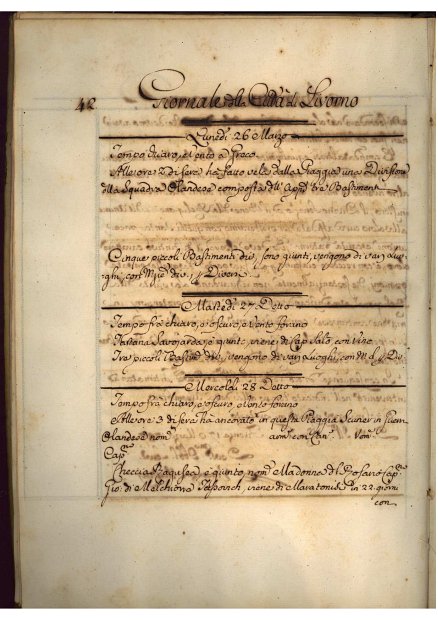 42 Giornale della Città di Livorno
Lunedì 26 Marzo
Tempo chiaro, e Vento a Greco
All'ore 2 di sera ha fatto vela dalla Piaggia una Divisione
della Squadra Olandese composta dell' app.o tre Bastimenti
Cinque piccoli Bastimenti div.i sono giunti, vengono di varj Luo-
ghi, con div.i
Martedì 27 Detto
Tempo frà chiaro, e oscuro, e Vento forano
Tartana Savojarda, è giunta, viene di Cap Salò con Vino
Tre piccoli Bastim.ti div.i vengono da varj Luoghi, con
Mercoldì 28 Detto
Tempo frà chiaro, e oscuro, e Vento forano
All'ore 3 di sera ha ancorato in questa Piaggia
Olandese nom.o arm. con Can. Uom.
Cap.n
Checcia Ragusea è giunta, nom.a Madonna del Rosario Cap.n
Gio: di Melchiorre viene di in 22 giorni
con